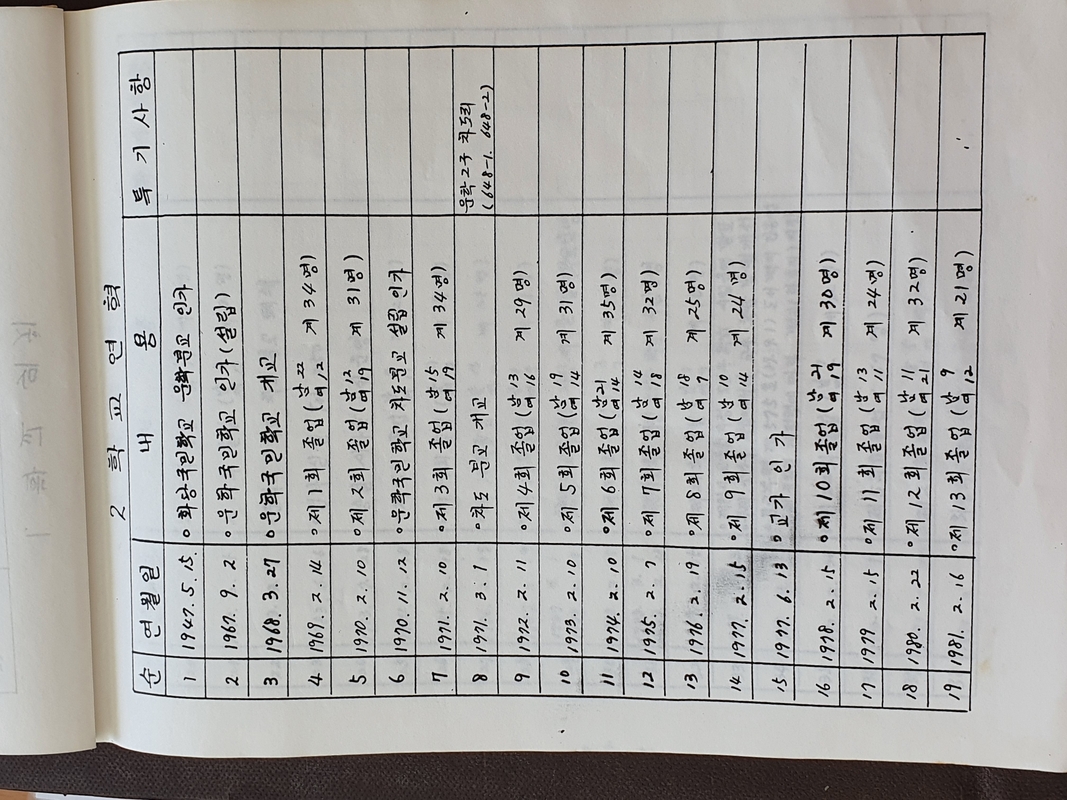 2 학교연혁
순 연월일 내용 특기사항
1 1947. 5. 15. ○화당국민학교 운학분교 인가
2 1967. 9. 2 ○운학국민학교 (인가(설립))
3 1968. 3. 27 ○운학국민학교 개교
4 1969. 2. 14 ○제1회 졸업 (남 22 여 12 계 34명)
5 1970. 2. 10 ○제2회 졸업 (남 12 여 19 계 31명)
6 1970. 11. 12 ○운학국민학교 차도분교 설립 인가
7 1971. 2. 10 ○제3회 졸업 (남 15 여 19 계 34명)
8 1971. 3. 1 ○차도 분교 개교 운학2구 차도리
(648-1. 648-2)
9 1972. 2. 11 ○제4회 졸업 (남 13 여 16 계 29명)
10 1973. 2. 10 ○제5회 졸업 (남 19 여 14 계 31명)
11 1974. 2. 10 ○제6회 졸업 (남 21 여 14 계 35명)
12 1975. 2. 7 ○제7회 졸업 (남 14 여 18 계 32명)
13 1976. 2. 19 ○제8회 졸업 (남 18 여 7 계 25명)
14 1977. 2. 15 ○제9회 졸업 (남 10 여 14 계 24명)
15 1977. 6. 13 ○교가 인가
16 1978. 2. 15 ○제10회 졸업 (남 21 여 19 계 30명)
17 1979 2. 15 ○제11회 졸업 (남 13 여 11 계 24명)
18 1980. 2. 22 ○제12회 졸업 (남 11 여 21 계 32명)
19 1981. 2. 16 ○제13회 졸업 (남 9 여 12 계 21명)